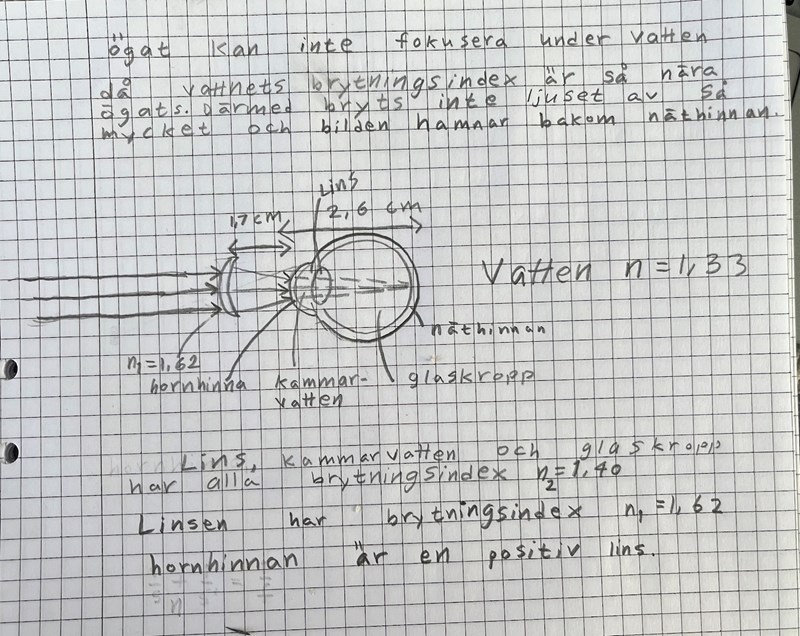 ögat kan inte fokusera under vatten
då vattnets brytningsindex är så nära
ögats. Därmed bryts inte ljuset av så
mycket och bilden hamnar bakom näthinnan.
Lins
1,7 cm
2,6 cm
Vatten n=1,33
näthinnan
n₁=1,62
hornhinna
kammar-
vatten
glaskropp
Lins, kammarvatten och glaskropp
har alla brytningsindex n₂=1,40
Linsen har brytningsindex n₁=1,62
hornhinnan är en positiv lins.